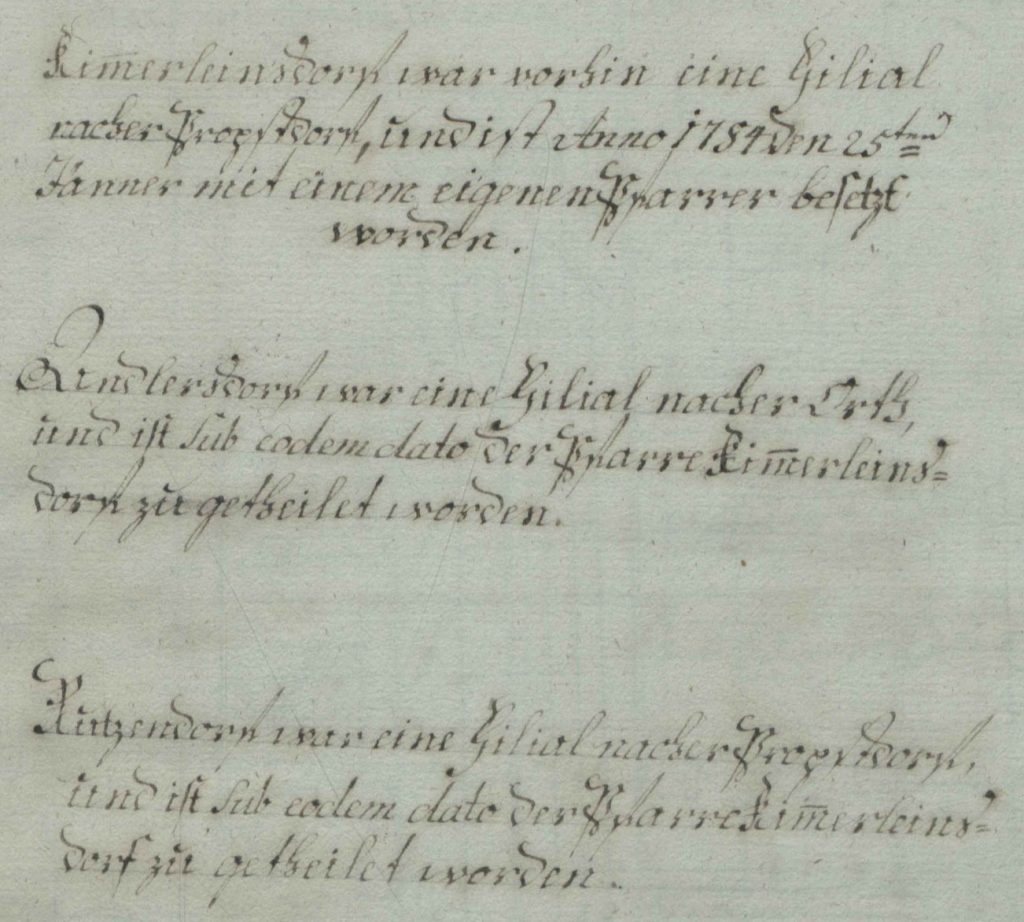 Kim̄erleinsdorf war vorhin eine Filial
nacher Propstdorf, und ist Anno 1784 den 25ten
Jänner mit einem eigenen Pfarrer besetzt
worden.
Andlersdorf war eine Filial nacher Orth,
und ist sub eodem dato der Pfarre Kim̄erleins=
dorf zu getheilet worden.
Rutzendorf war eine Filial nacher Propstdorf,
und ist sub eodem dato der Pfarre Kim̄erleins=
dorf zu getheilet worden.